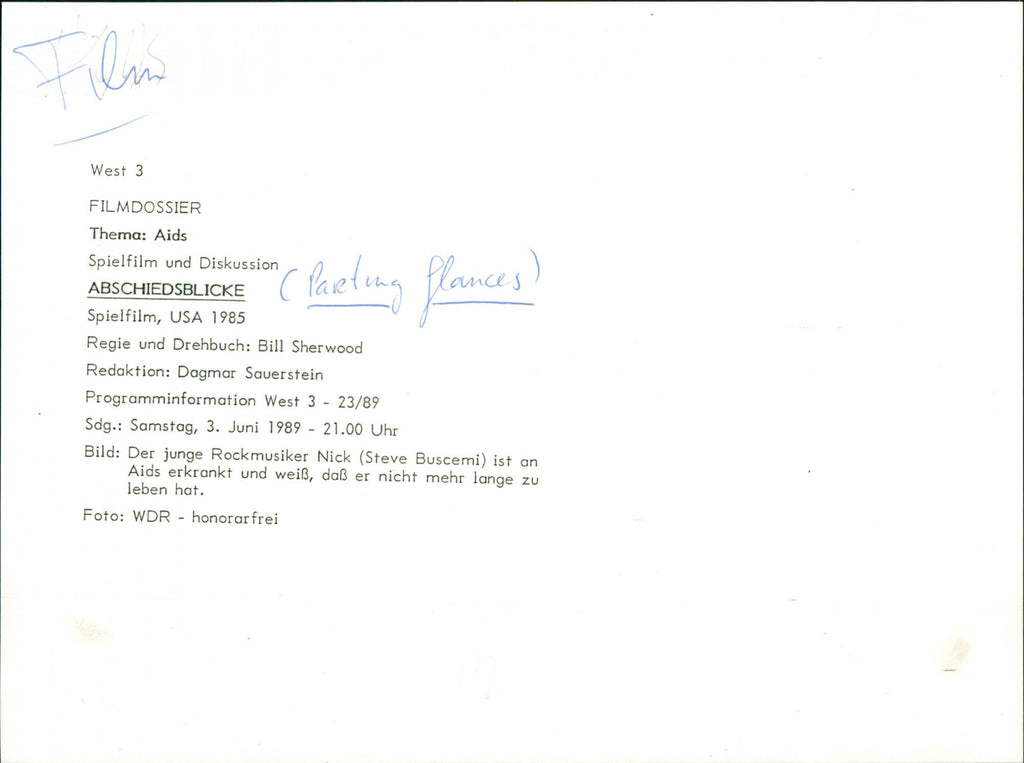 Film
West 3
FILMDOSSIER
Thema: Aids
Spielfilm und Diskussion
ABSCHIEDSBLICKE (Parting Glances)
Spielfilm, USA 1985
Regie und Drehbuch: Bill Sherwood
Redaktion: Dagmar Sauerstein
Programminformation West 3 - 23/89
Sdg.: Samstag, 3. Juni 1989 - 21.00 Uhr
Bild: Der junge Rockmusiker Nick (Steve Buscemi) ist an
Aids erkrankt und weiß, daß er nicht mehr lange zu
leben hat.
Foto: WDR - honorarfrei